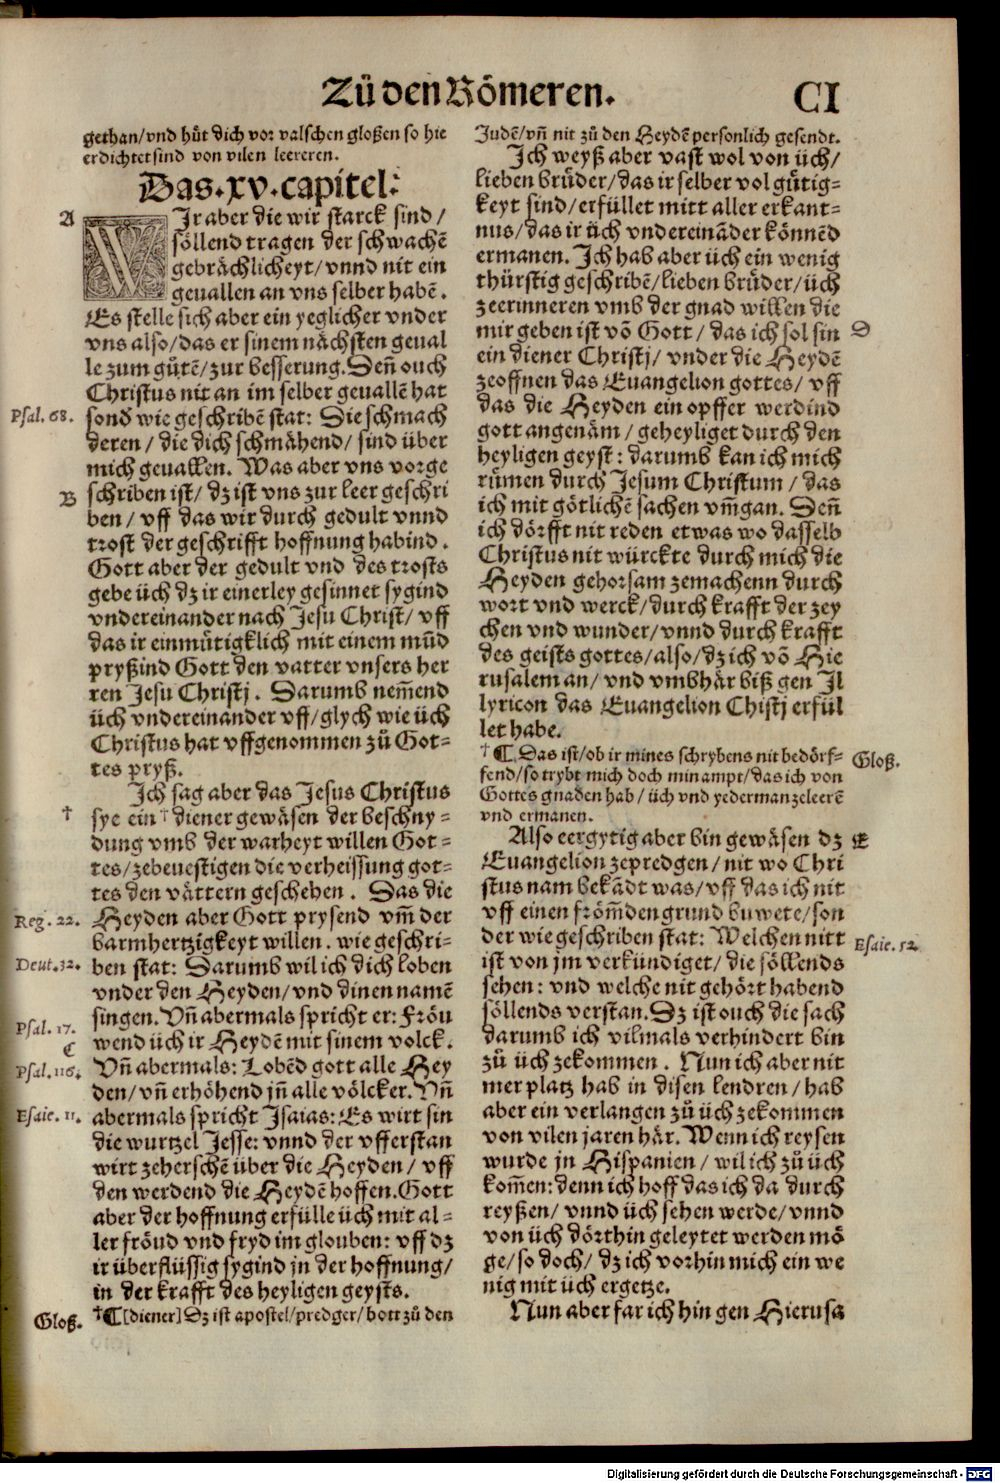 Zů den Römeren.
CI
gethan/vnd hůt dich vor valschen gloßen so hie
erdichtet sind von vilen leereren.
Das.xv.capitel:
A
WJr aber die wir starck sind/
söllend tragen der schwachẽ
gebrächlicheyt/vnnd nit ein
geuallen an vns selber habẽ.
Es stelle sich aber ein yeglicher vnder
vns also/das er sinem nächsten geual
le zum gůtẽ/zur besserung. Deñ ouch
Christus nit an im selber geuallẽ hat
Psal. 68.
sond̃ wie geschribẽ stat: Die schmach
deren/die dich schmähend/sind über
mich geuallen. Was aber vns vorge
B
schriben ist/dz ist vns zur leer geschri
ben/vff das wir durch gedult vnnd
trost der geschrifft hoffnung habind.
Gott aber der gedult vnd des trosts
gebe üch dz ir einerley gesinnet sygind
vndereinander nach Jesu Christ/vff
das ir einmütigklich mit einem mũd
pryßind Gott den vatter vnsers her
ren Jesu Christj. Darumb nem̃end
üch vndereinander vff/glych wie üch
Christus hat vffgenommen zů Got=
tes pryß.
Jch sag aber das Jesus Christus
†
sye ein † diener gewäsen der beschny=
dung vmb der warheyt willen Got=
tes/zebeuestigen die verheissung got=
tes den vättern geschehen. Das die
Reg. 22.
Heyden aber Gott prysend vm̃ der
barmhertzigkeyt willen. wie geschri=
Deut.32.
ben stat: Darumb wil ich dich loben
vnder den Heyden/vnd dinen namẽ
Psal. 17.
singen. Vñ abermals spricht er: Fröu
C
wend üch ir Heydẽ mit sinem volck.
Psal.116.
Vñ abermals: Lobẽd gott alle Hey
den/vñ erhöhend jñ alle völcker. Vñ
Esaie. 11.
abermals spricht Jsaias: Es wirt sin
die wurtzel Jesse: vnnd der vfferstan
wirt zeherschẽ über die Heyden/vff
den werdend die Heydẽ hoffen. Gott
aber der hoffnung erfülle üch mit al=
ler fröud vnd fryd im glouben: vff dz
ir überflüssig sygind jn der hoffnung/
in der krafft des heyligen geysts.
Gloß.
†¶[diener] Dz ist apostel/predger/bott zů den
Judẽ/vñ nit zů den Heydẽ personlich gesendt.
Jch weyß aber vast wol von üch/
lieben brüder/das ir selber vol gütig=
keyt sind/erfüllet mitt aller erkant=
nus/das ir üch vndereinãder könnẽd
ermanen. Jch hab aber üch ein wenig
thürstig geschribẽ/lieben brüder/üch
zeerinneren vmb der gnad willen die
mir geben ist võ Gott/das ich sol sin
D
ein diener Christj/vnder die Heydẽ
zeoffnen das Euangelion gottes/vff
das die Heyden ein opffer werdind
gott angenäm/geheyliget durch den
heyligen geyst: darumb kan ich mich
rümen durch Jesum Christum/das
ich mit götlichẽ sachen vm̃gan. Deñ
ich dörfft nit reden etwas wo dasselb
Christus nit würckte durch mich die
Heyden gehorsam zemachenn durch
wort vnd werck/durch krafft der zey
chen vnd wunder/vnnd durch krafft
des geists gottes/also/dz ich võ Hie
rusalem an/vnd vmbhär biß gen Jl
lyricon das Euangelion Chistj erfül
let habe.
†¶ Das ist/ob ir mines schrybens nit bedörf=
Gloß.
fend/so trybt mich doch min ampt/das ich von
Gottes gnaden hab/üch vnd yederman zeleerẽ
vnd ermanen.
Also eergytig aber bin gewäsen dz
E
Euangelion zepredgen/nit wo Chri
stus nam bekãdt was/vff das ich nit
vff einen fröm̃den grund buwete/son
der wie geschriben stat: Welchen nitt
Esaie. 52.
ist von jm verkündiget/die söllends
sehen: vnd welche nit gehört habend
söllends verstan. Dz ist ouch die sach
darumb ich vilmals verhindert bin
zů üch zekommen. Nun ich aber nit
mer platz hab in disen lendren/hab
aber ein verlangen zů üch zekommen
von vilen jaren här. Wenn ich reysen
wurde jn Hispanien/wil ich zů üch
kom̃en: denn ich hoff das ich da durch
reyßen/vnnd üch sehen werde/vnnd
von üch dörthin geleytet werden mö
ge/so doch/dz ich vorhin mich ein we
nig mit üch ergetze.
Nun aber far ich hin gen Hierusa
Digitalisierung gefördert durch die Deutsche Forschungsgemeinschaft - DFG